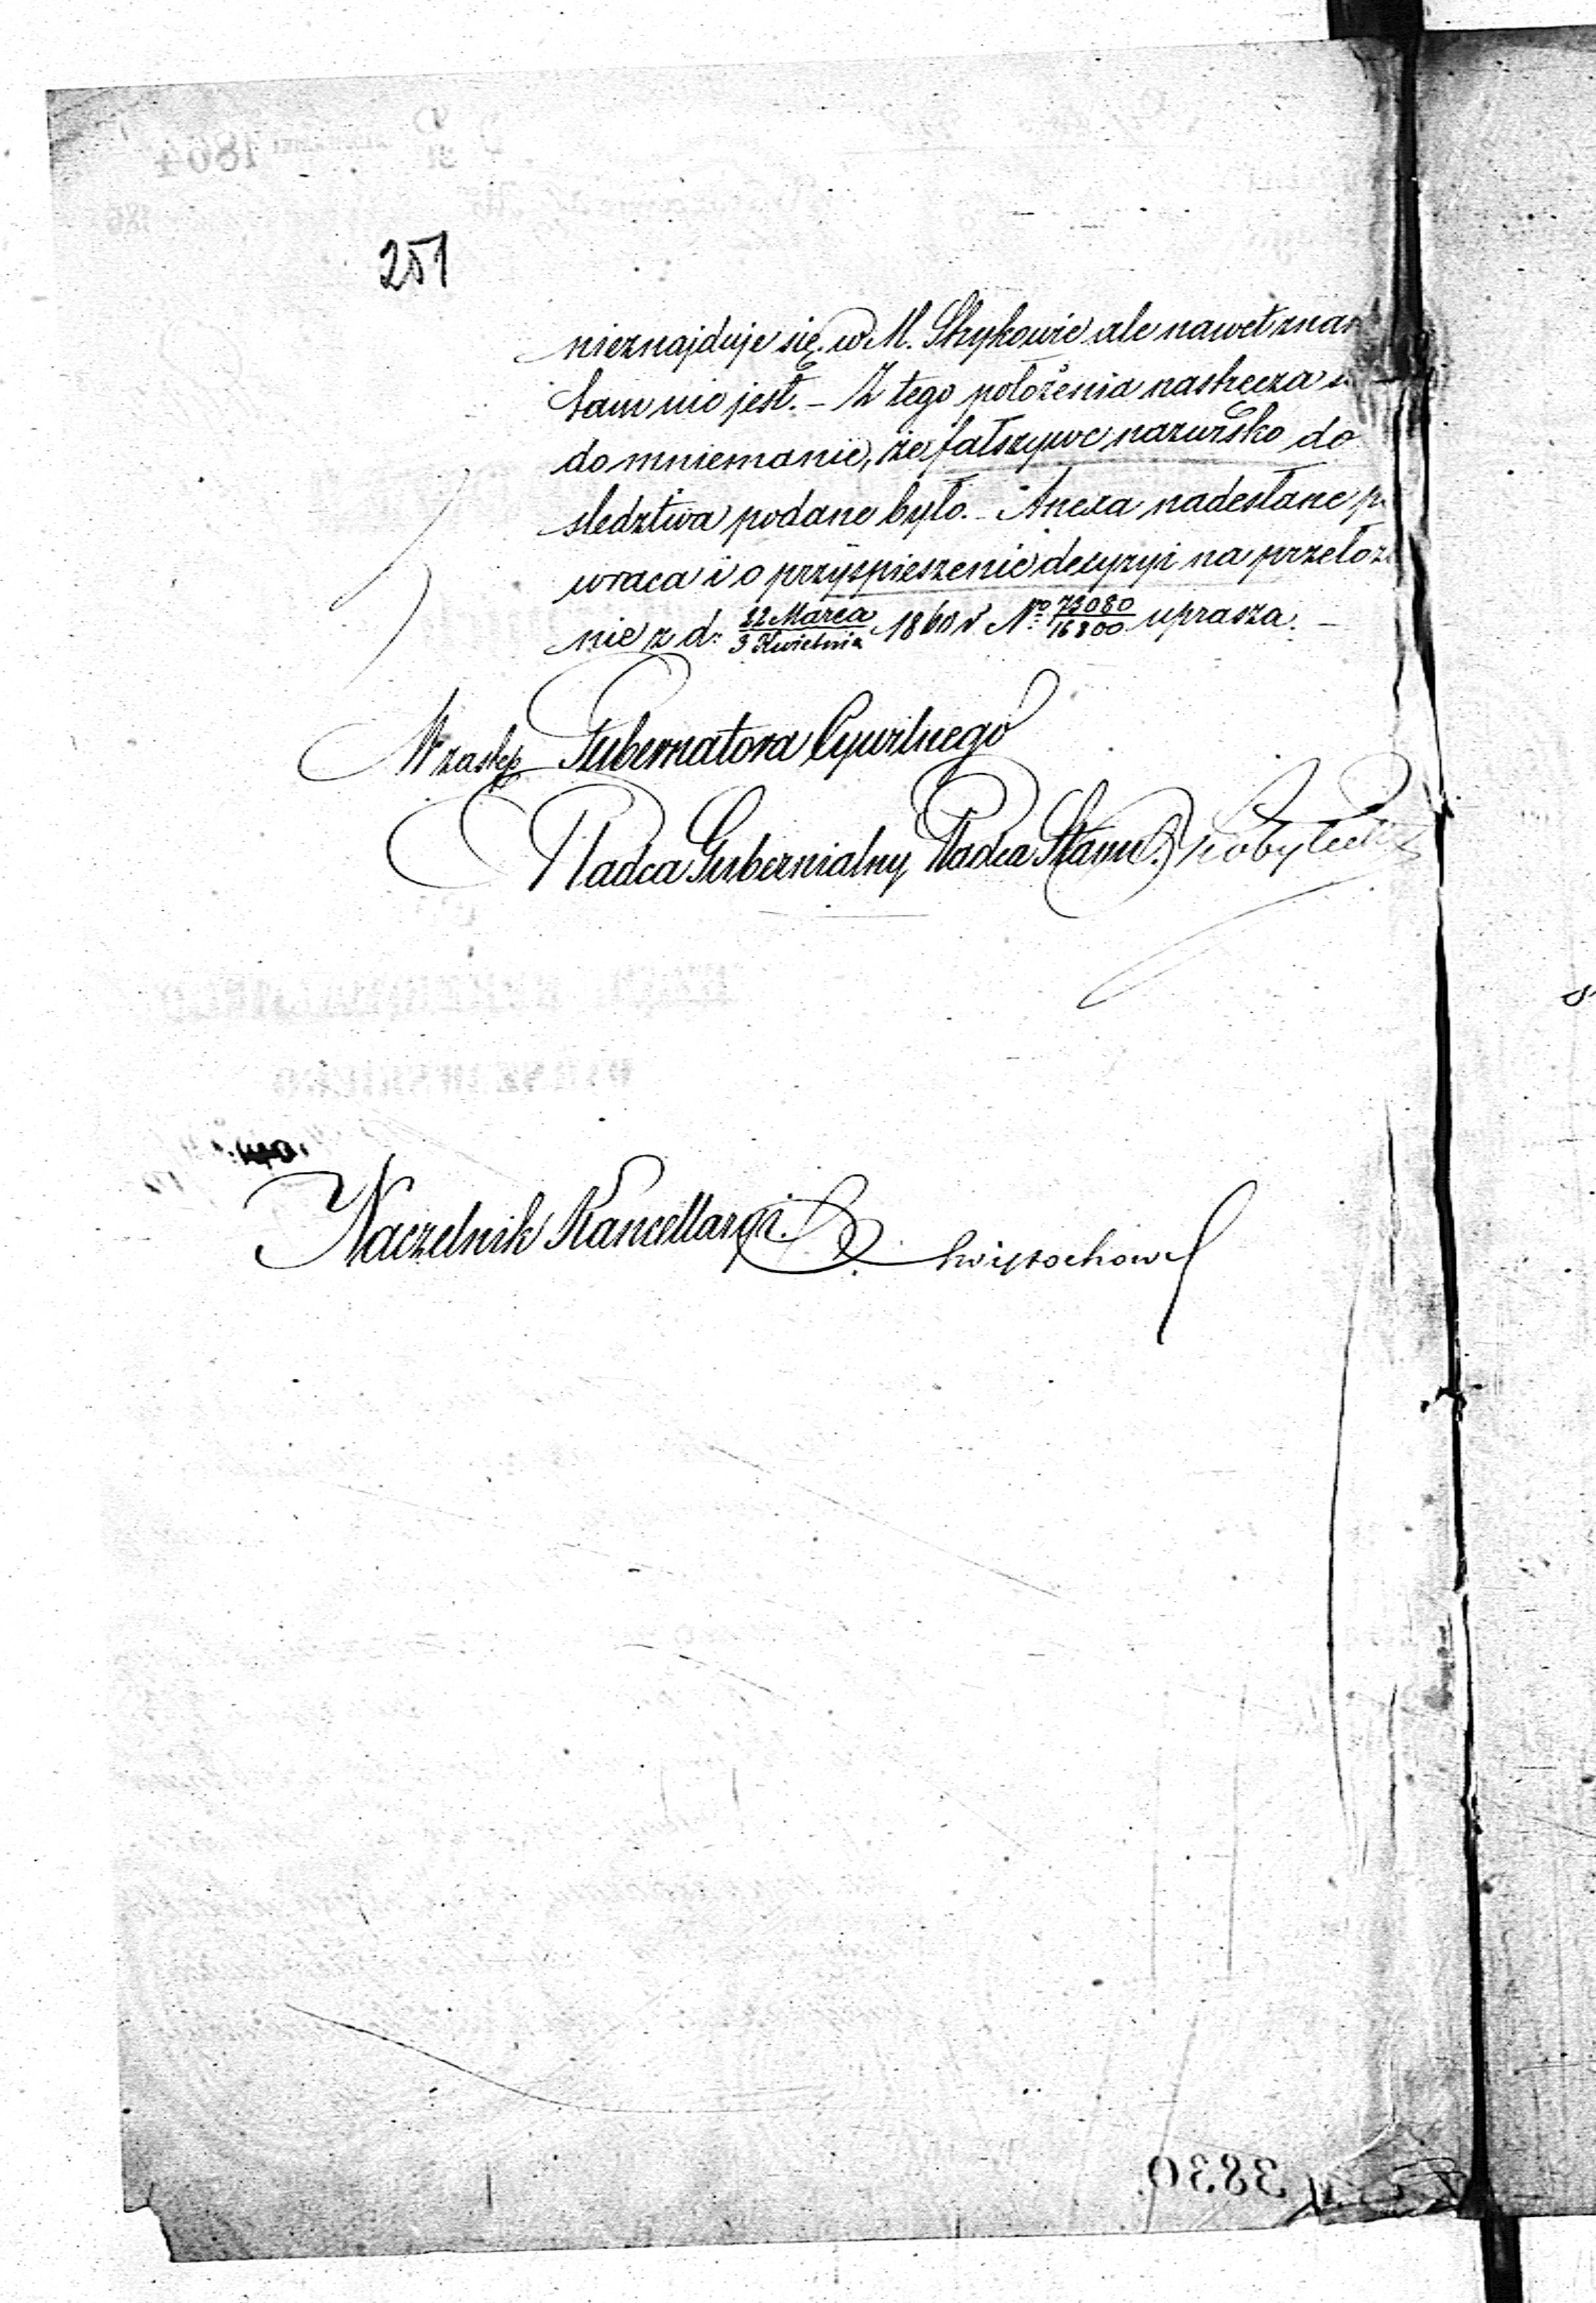 251
nieznajduje się w M. Strykowie ale nawet znan
tam nie jest. – Z tego położenia nastręcza s
do mniemanie, że fałszywe nazwisko do
śledztwa podane było. – Anexa nadesłane p
wraca i o przyśpieszenie decyzyi na przełoże
nie z d. 22 Marca / 3 Kwietnia 1860 r No 73080 / 16800 uprasza. –
W zastęp Gubernatora Cywilnego
Radca Gubernialny Radca Stanu Kobyłecki
Naczelnik Kancellaryi
3830